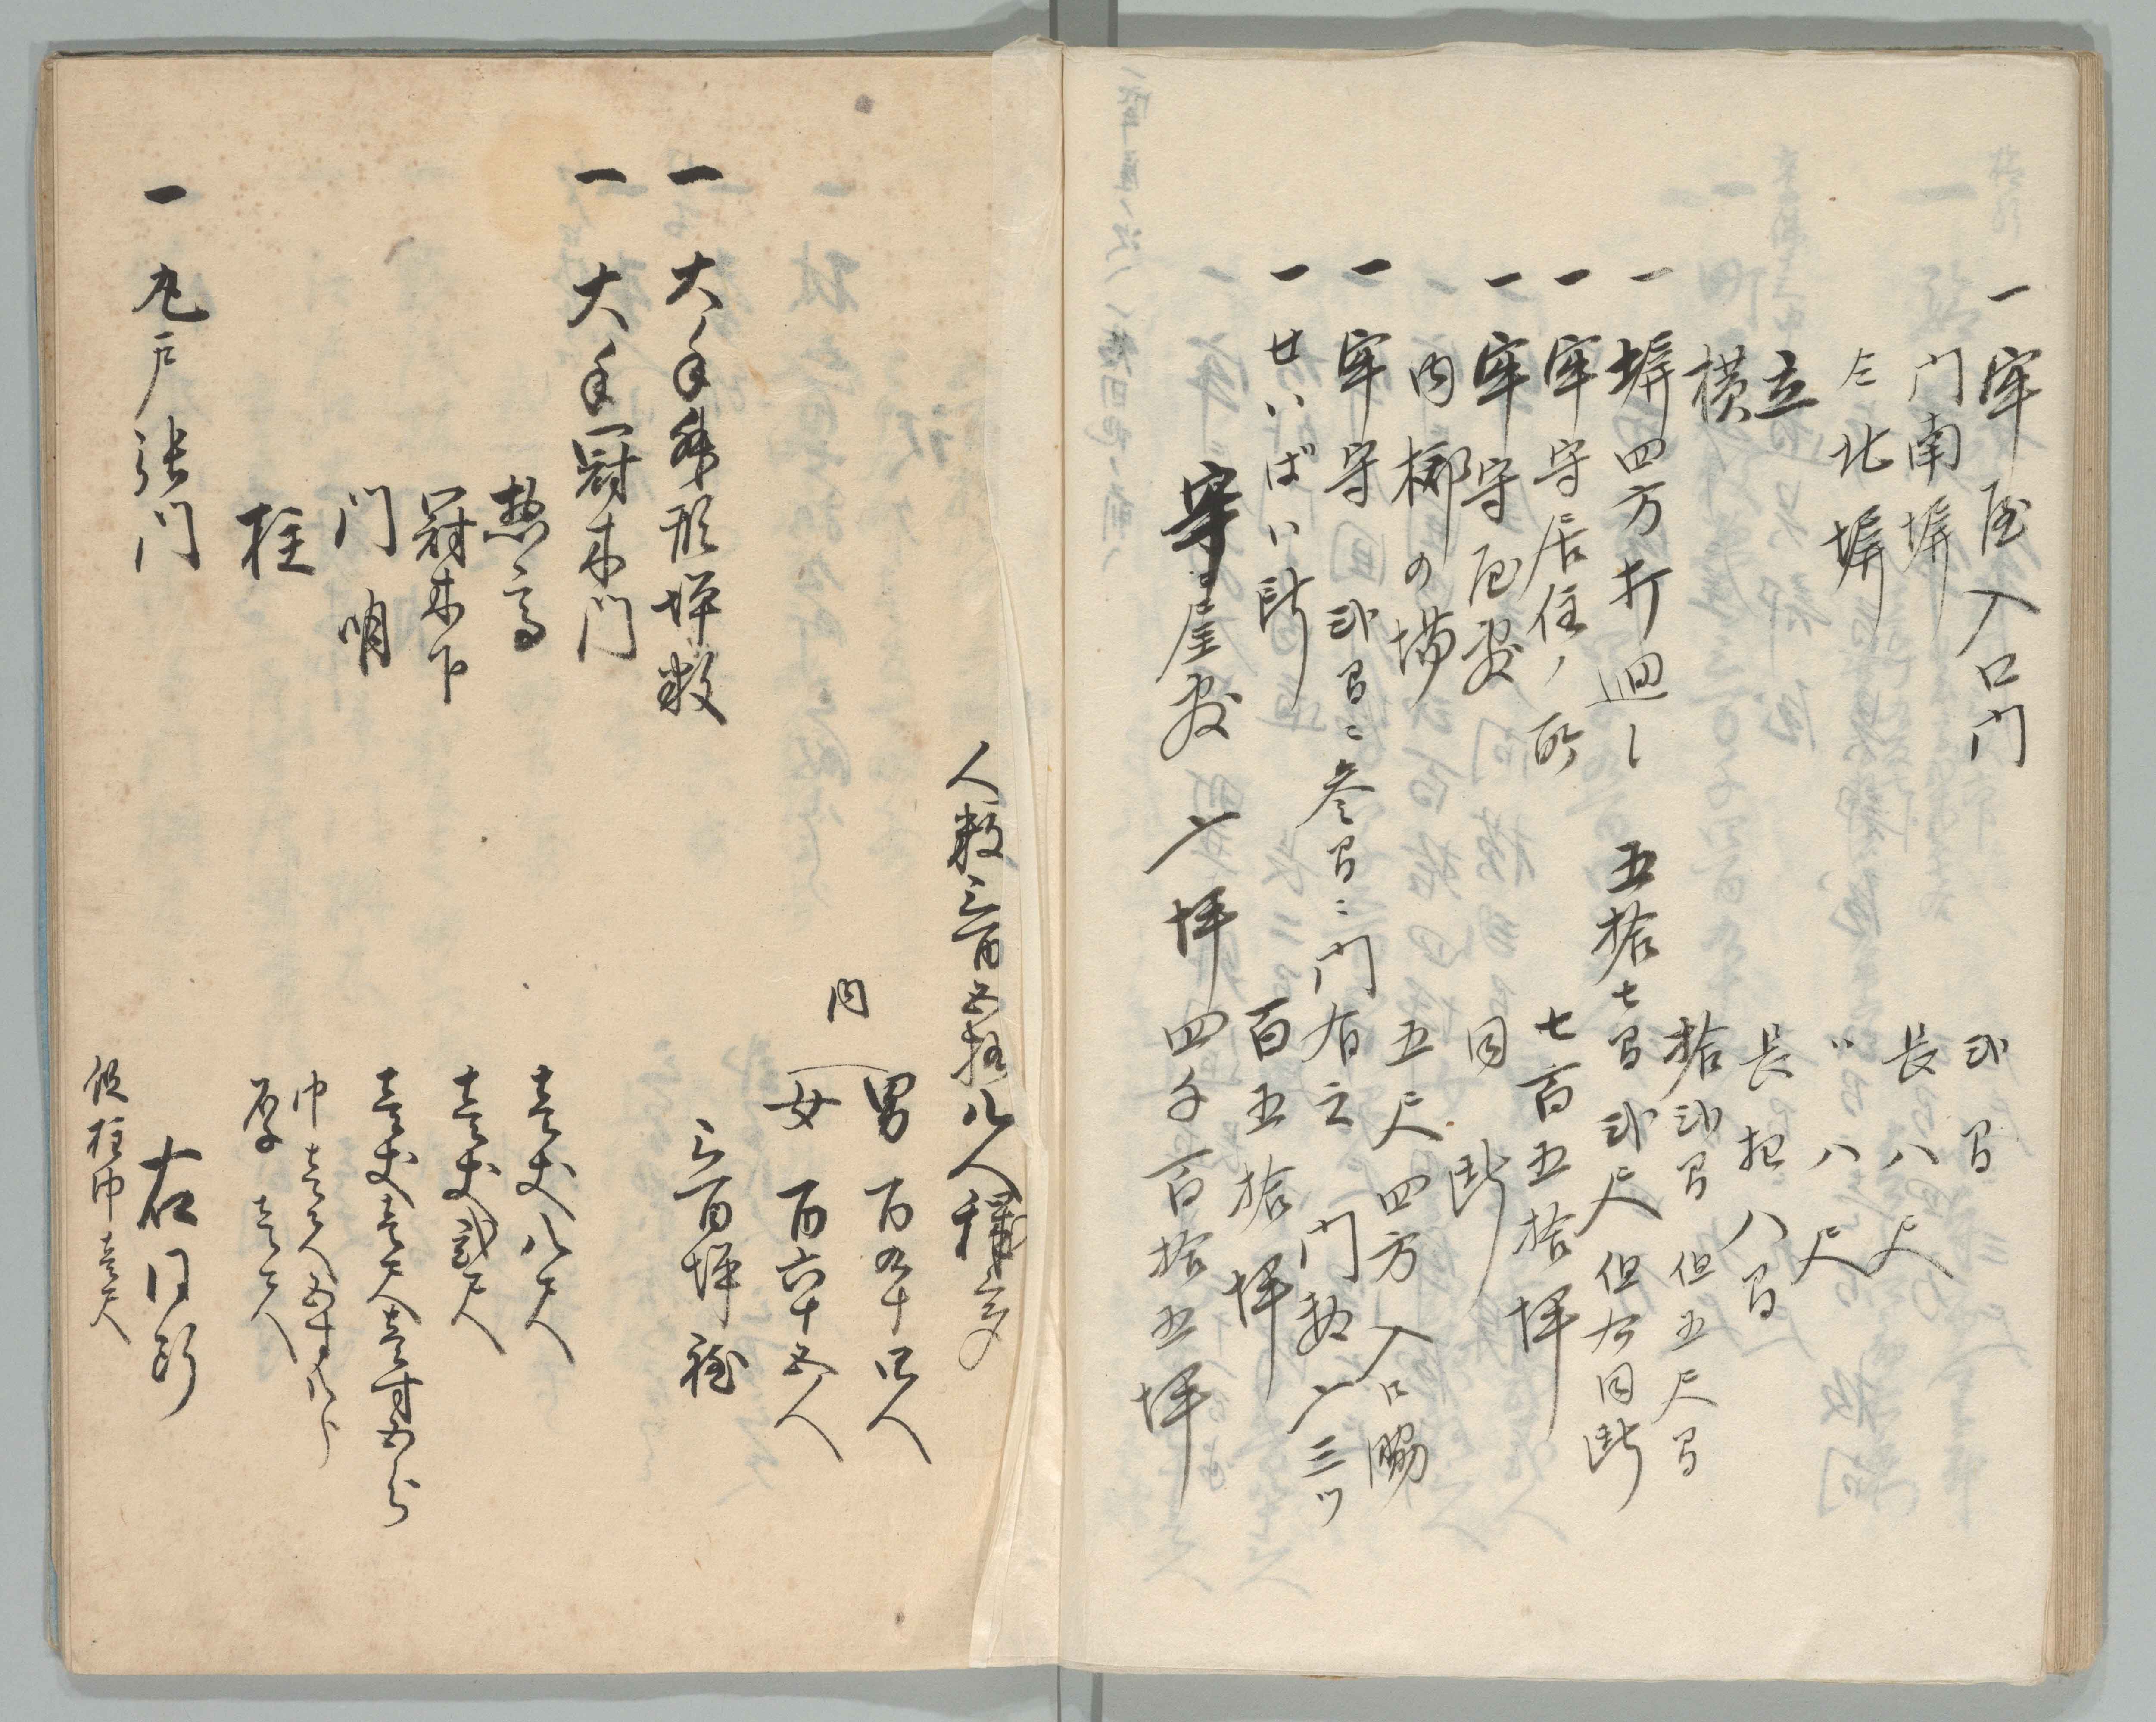 一牢屋入口門　弐間
門南塀　長八尺
〃北塀　〃八尺
立　長拾八間
横　拾弐間　但五尺間
一塀四方打廻し　五拾七間弐尺　但右同断
一牢守居住ノ所　七百五拾坪
一牢守屋敷　同断
内梛の場　五尺四方入口脇
一牢守囲弐間ニ参間ニ門有之　門数〆三ツ
一せいばい所　百五拾坪
牢屋敷〆坪四千百拾五坪
人数三百五拾八人穢多
内
男　百九十四人
女　百六十五人
一大手舛形坪数　三百坪程
一大手冠木門
惣高　壱丈八尺
冠木下　壱丈弐尺
門明　壱丈壱尺壱寸五分
柱　巾壱尺五寸八分
厚壱尺
一丸戸張門　右同断
但柱巾壱尺